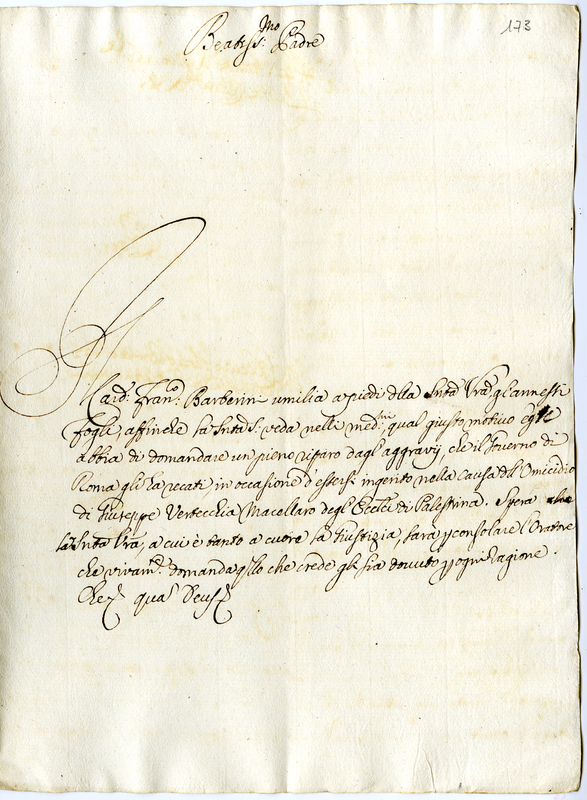 173
Beatiss.mo Padre
Il Card: Franc.o Barberini umilia a piedi della Sntà Vra gl'annessi
fogli, affinche la Sntà S. veda nelli med.mi qual giusto motivo egli
abbia di domandare un pieno riparo dagl'aggravij, che il Governo di
Roma gli ha recati, in occasione d'essersi ingerito nella causa dell'Omicidio
di Giuseppe Vertecchia Macellaro degl'Eccl.ci di Palestrina. Spera
la Sntà Vra, a cui è tanto a cuore la Giustizia, sarà p consolare l'Oratore
che vivam.e domanda q.llo che crede gli sia dovuto p ogni ragione.
Che qua Deus